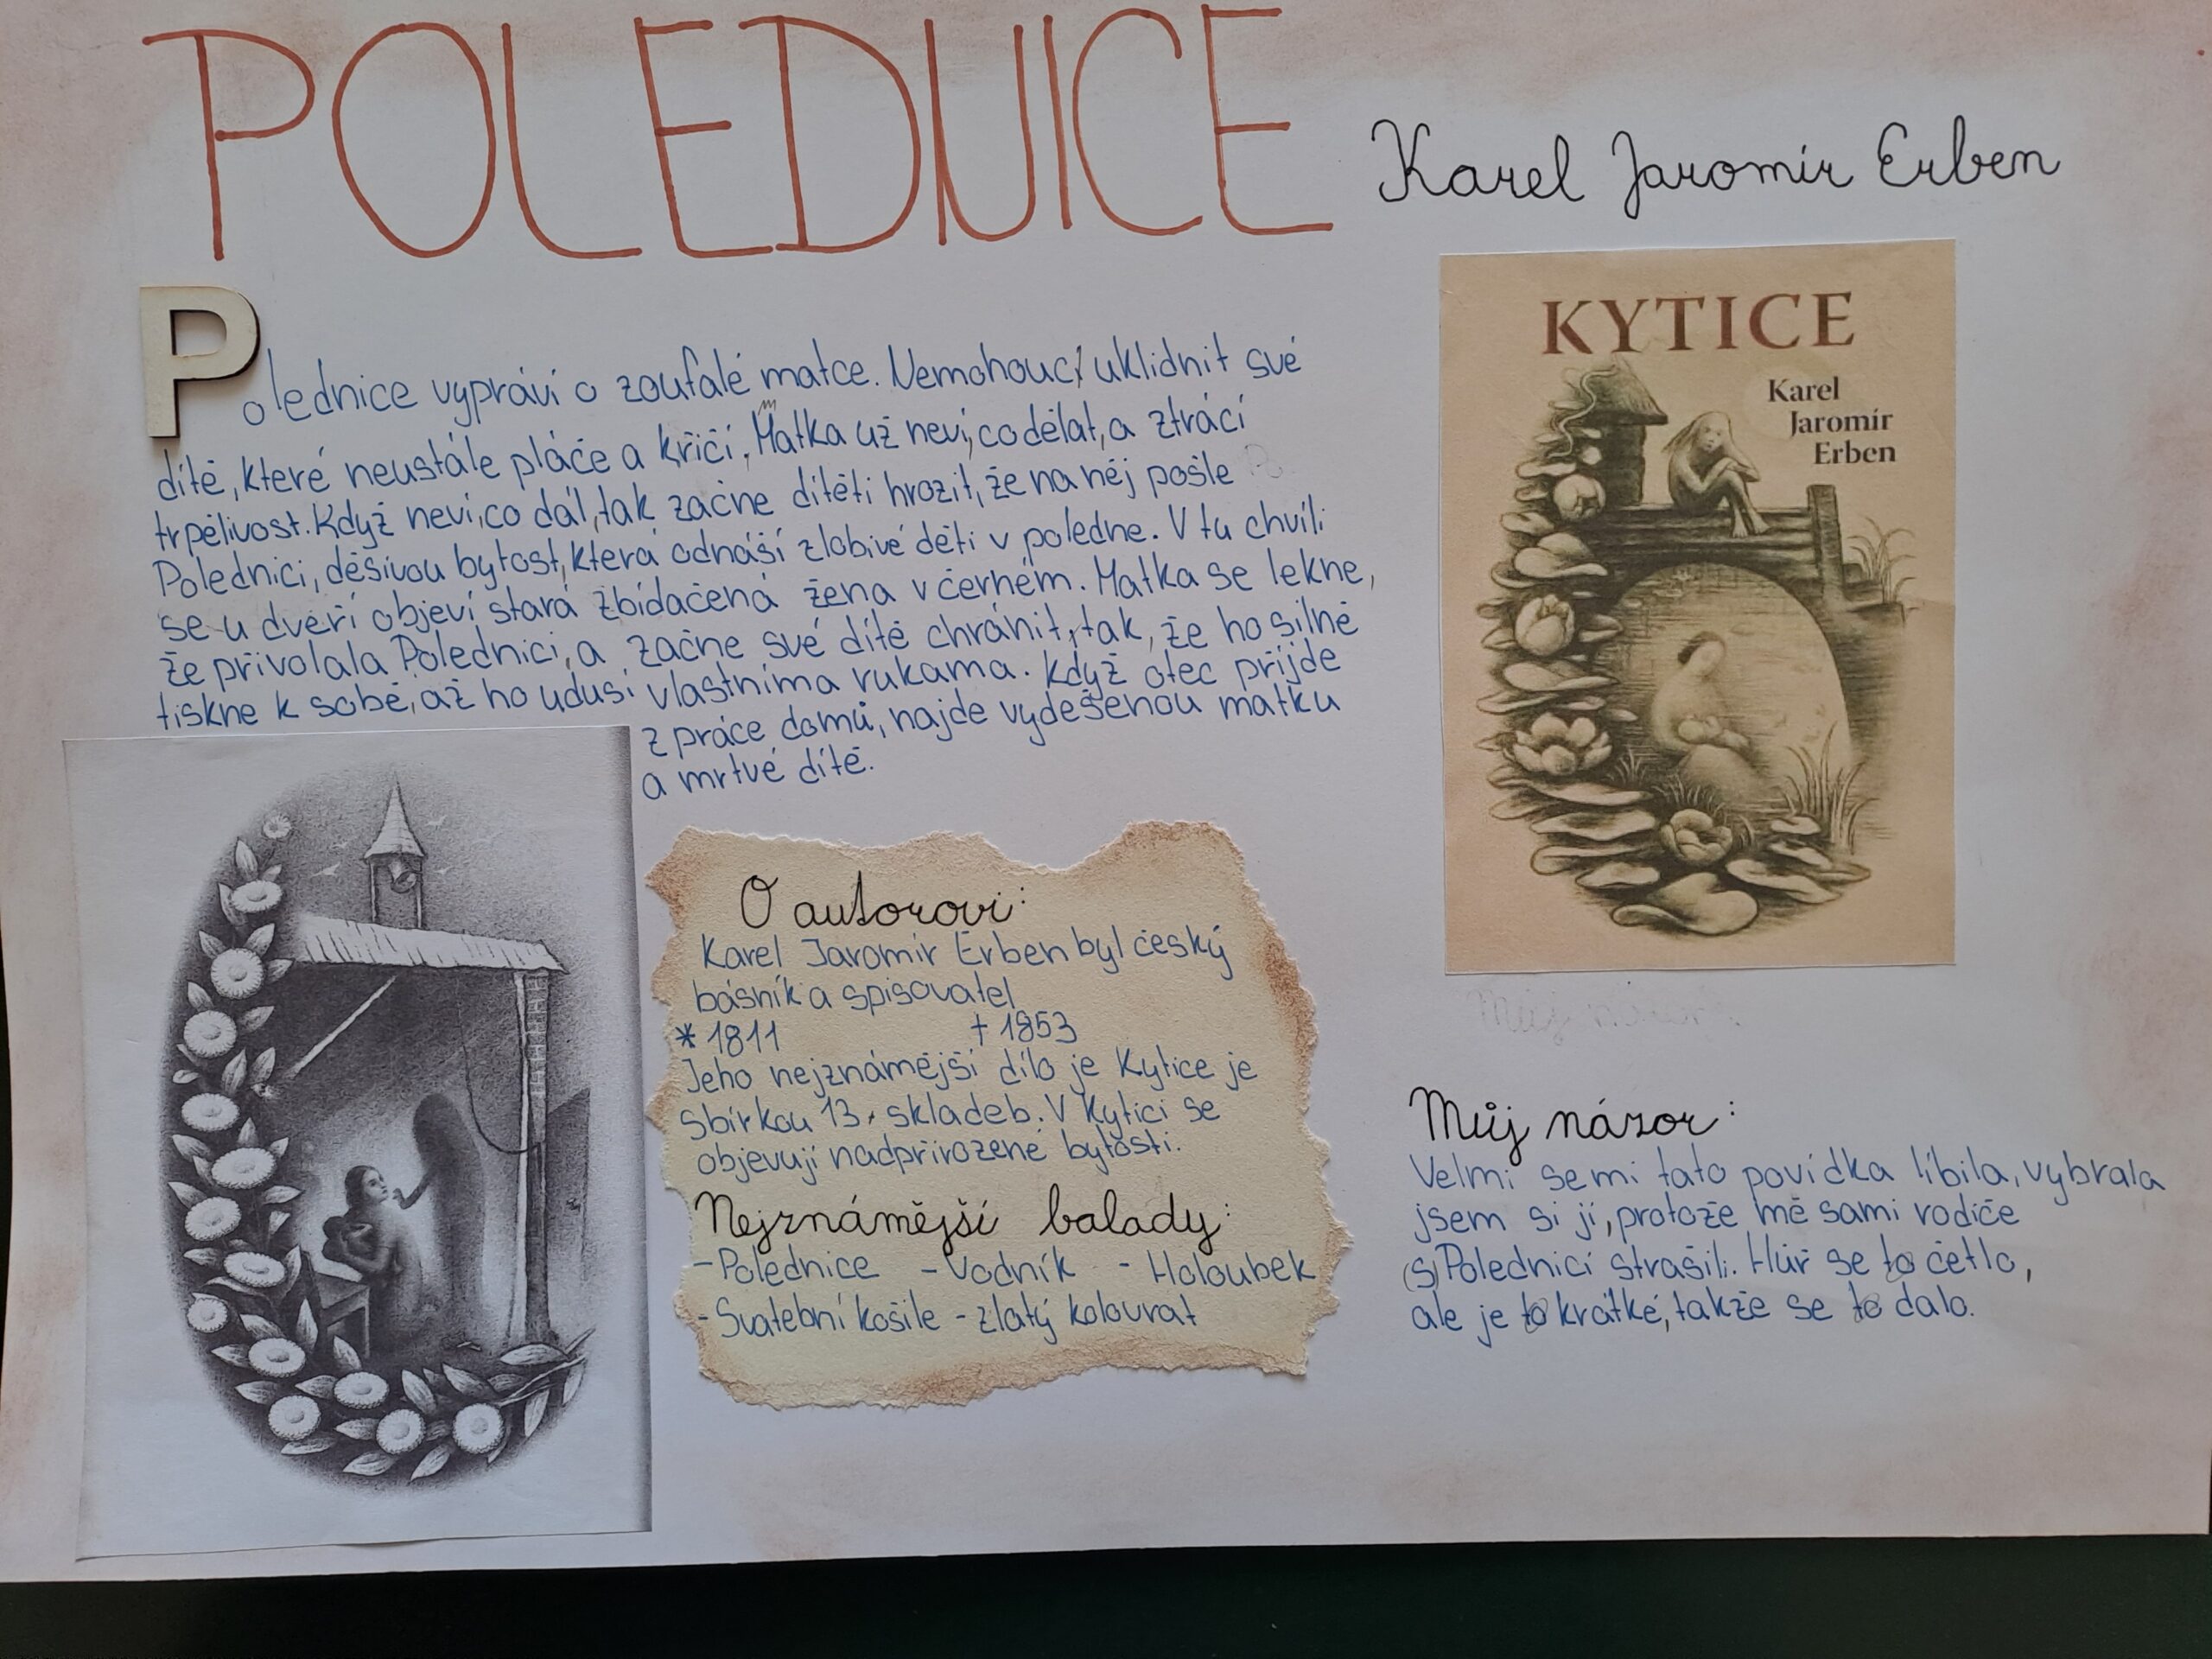 POLEDNICE
Karel Jaromír Erben
Polednice vypráví o zoufalé matce. Nemohouc uklidnit své
dítě, které neustále pláče a křičí. Matka už neví, co dělat, a ztrácí
trpělivost. Když neví, co dál, tak začne dítěti hrozit, že na něj pošle
Polednici, děsivou bytost, která odnáší zlobivé děti v poledne. V tu chvíli
se u dveří objeví stará zbídačená žena v černém. Matka se lekne,
že přivolala Polednici, a začne své dítě chránit, tak, že ho silně
tiskne k sobě, až ho udusí vlastníma rukama. Když otec přijde
z práce domů, najde vyděšenou matku
a mrtvé dítě.
KYTICE
Karel
Jaromír
Erben
O autorovi:
Karel Jaromír Erben byl český
básník a spisovatel
* 1811 † 1853
Jeho nejznámější dílo je Kytice je
sbírkou 13. skladeb. V Kytici se
objevují nadpřirozené bytosti.
Nejznámější balady:
- Polednice - Vodník - Holoubek
- Svatební košile - zlatý kolovrat
Můj názor:
Můj názor:
Velmi se mi tato povídka líbila, vybrala
jsem si jí, protože mě sami rodiče
(s) Polednicí strašili. Hůř se to četlo,
ale je to krátké, takže se to dalo.